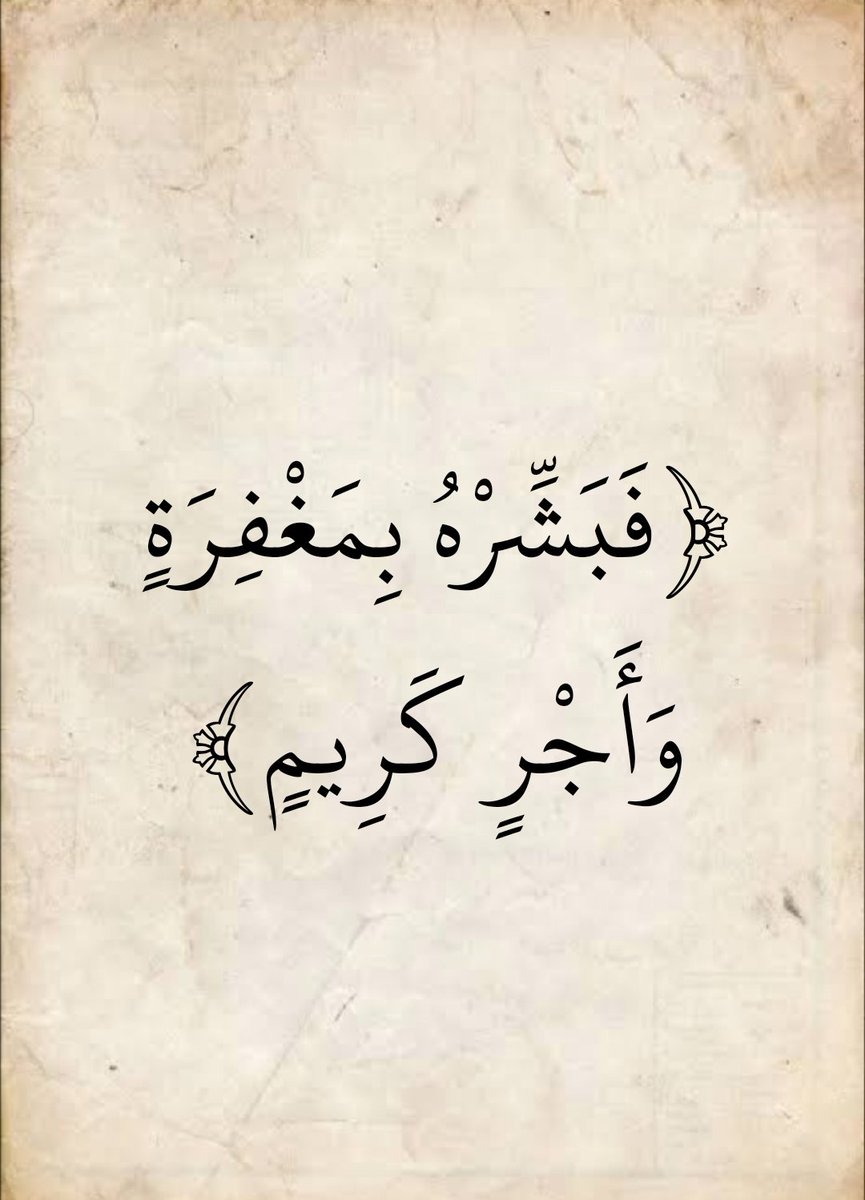 ﴿فَبَشِّرْهُ بِمَغْفِرَةٍ
وَأَجْرٍ كَرِيمٍ﴾